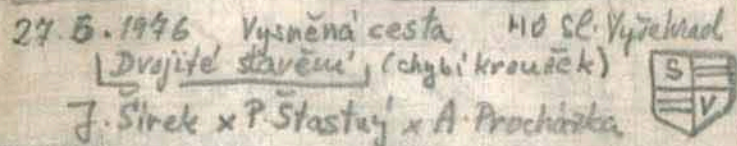 27.5.1976 Vysněná cesta HO Sl. Vyšehrad
Dvojité stavění, (chybí kroužek)
J. Šírek x P. Šťastný x A. Procházka
S
V